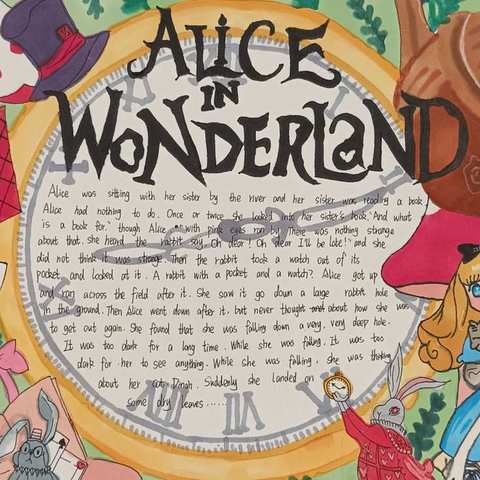 ALICE
IN
WONDERLAND
Alice was sitting with her sister by the river and her sister was reading a book
Alice had nothing to do. Once or twice she looked into her sister's book. "And what
is a book for" though Alice with pink eyes ran by. There was nothing strange
about that. she heard the rabbit say, Oh dear! Oh dear I'll be late!" and she
did not think it was strange. Then the rabbit took a watch out of its
pocket and looked at it. A rabbit with a pocket and a watch? Alice got up
and ran across the field after it. She saw it go down a large rabbit hole
in the ground. Then Alice went down after it, but never thought about how she was
to get out again. She found that she was falling down a very, very deep hole.
It was too dark for a long time. While she was falling. It was too
dark for her to see anything. While she was falling, she was thinking
about her cat Dinah. Suddenly she landed on
some dry leaves......
XII
I
VI
VII